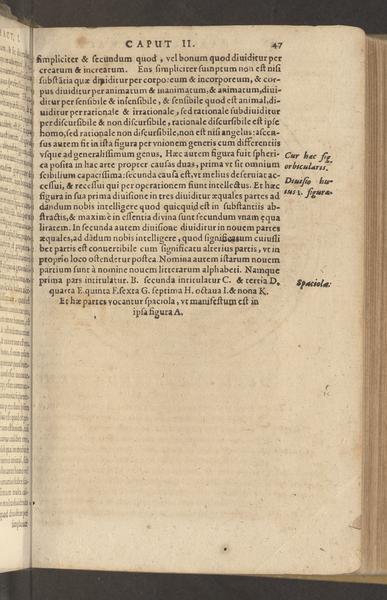 CAPUT II. 47
simpliciter & secundum quod, vel bonum quod diuiditur per
creatum & increatum. Ens simpliciter sumptum non est nisi
substātia quæ diuiditur per corporeum & incorporeum, & cor-
pus diuiditur per animatum & inanimatum, & animatum, diui-
ditur per sensibile & insensibile, & sensibile quod est animal, di-
uiditur per rationale & irrationale, sed rationale subdiuiditur
per discursibile & non discursibile, rationale discursibile est ipse
homo, sed rationale non discursibile, non est nisi angelus: ascen-
sus autem fit in ista figura per vnionem generis cum differentiis
vsque ad generalissimum genus, Hæc autem figura fuit spheri-
ca posita in hac arte propter causas duas, prima vt sit omnium
scibilium capacissima: secunda causa est, vt melius deseruiat ac-
cessui, & recessui qui per operationem fiunt intellectus. Et hæc
figura in sua prima diuisione in tres diuiditur æquales partes ad
dandum nobis intelligere quod quicquid est in substantiis ab-
stractis, & maximè in essentia diuina sunt secundum vnam equa
litatem. In secunda autem diuisione diuiditur in nouem partes
æquales, ad dādum nobis intelligere, quod significatum cuiusli
bet partis est conuertibile cum significatu alterius partis, vt in
proprio loco ostendetur postea. Nomina autem istarum nouem
partium sunt à nomine nouem litterarum alphabeti. Namque
prima pars intitulatur. B. secunda intitulatur C. & tertia D.
quarta E. quinta F. sexta G. septima H. octaua I. & nona K.
Et hæ partes vocantur spaciola, vt manifestum est in
ipsa figura A.
Cur hæc fig.
orbicularis.
Diuisio hu-
ius 1. figuræ.
Spaciola: